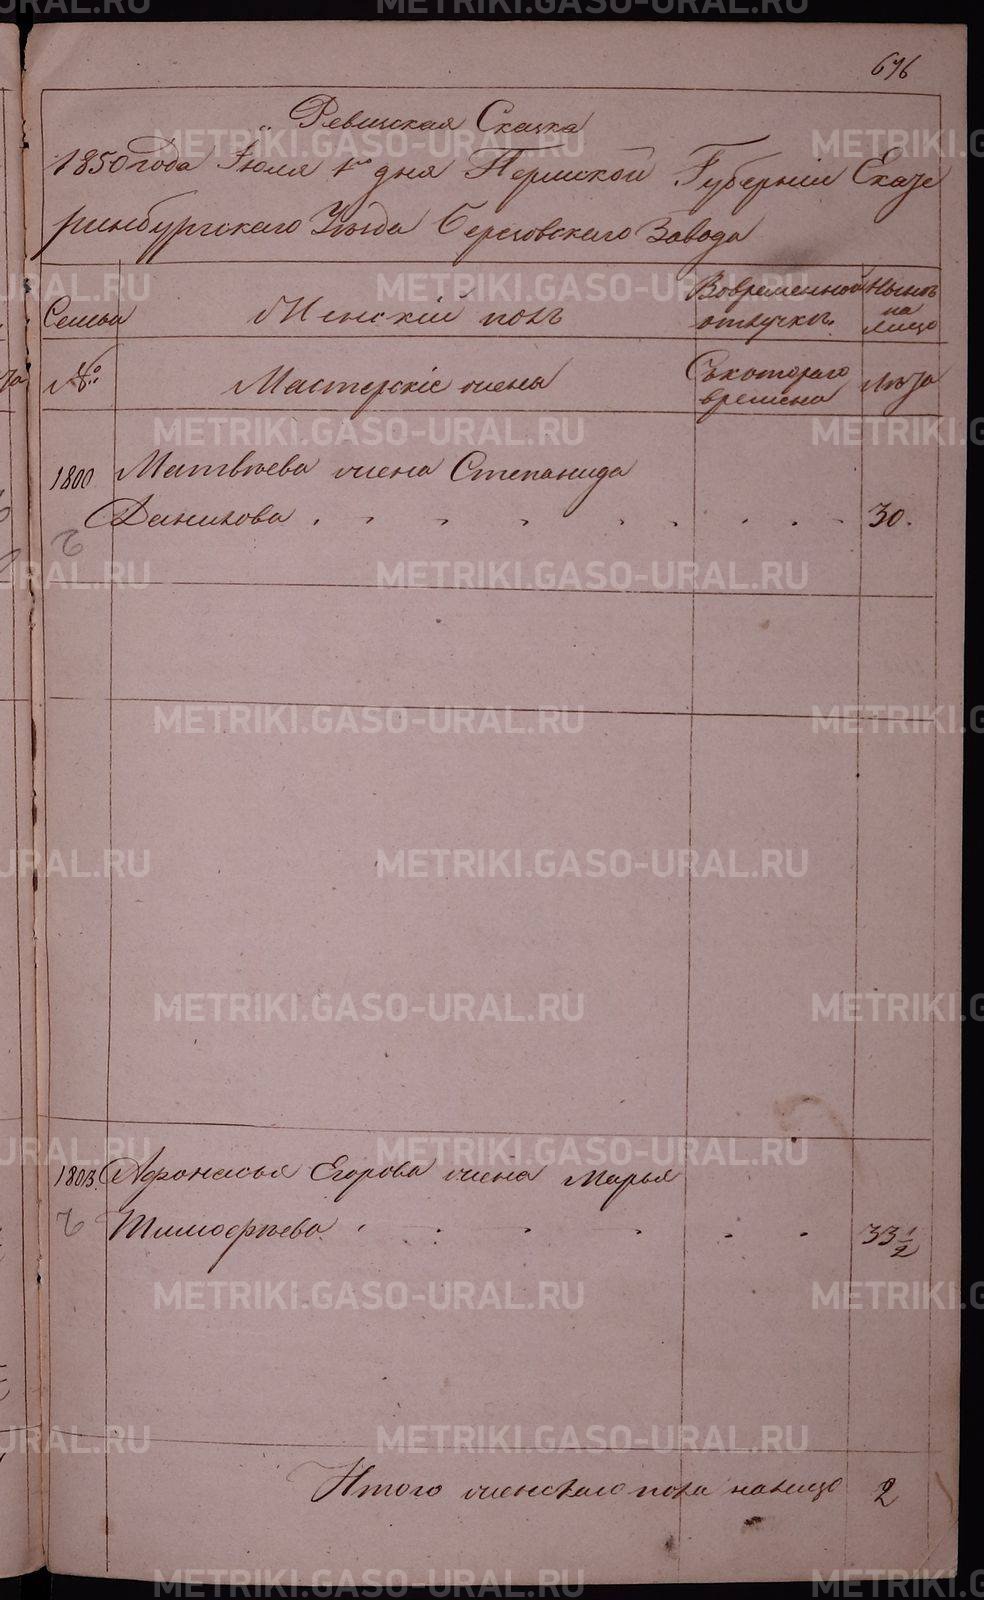 676
Ревизская Сказка
1850 года Іюля 1го дня Пермской Губерніи Екате
ринбургскаго Уѣзда Березовскаго Завода
Семьи
Женскій полъ
Вовременной отлучкѣ.
Нынѣ на лицо
№
Мастерскіе жены
Съкотораго времени
Лѣта
1800
Матвѣева жена Степанида
Данилова
30.
1803.
Афонасья Егорова жена Марья
Тимофѣева
33 1/2
Итого женскаго пола налицо 2
METRIKI.GASO-URAL.RU